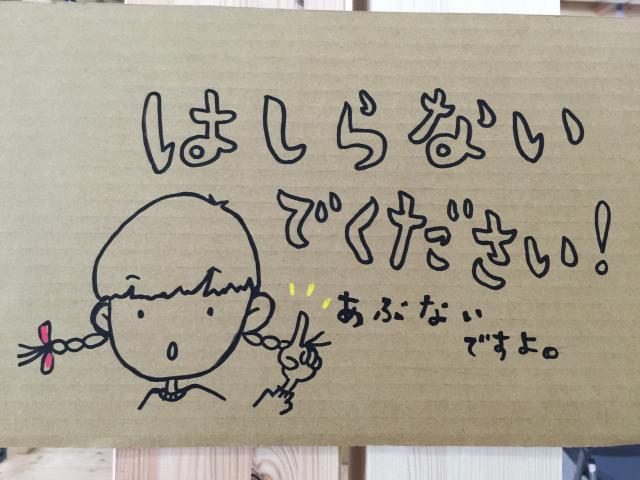 はしらない
でください!
あぶない
ですよ。